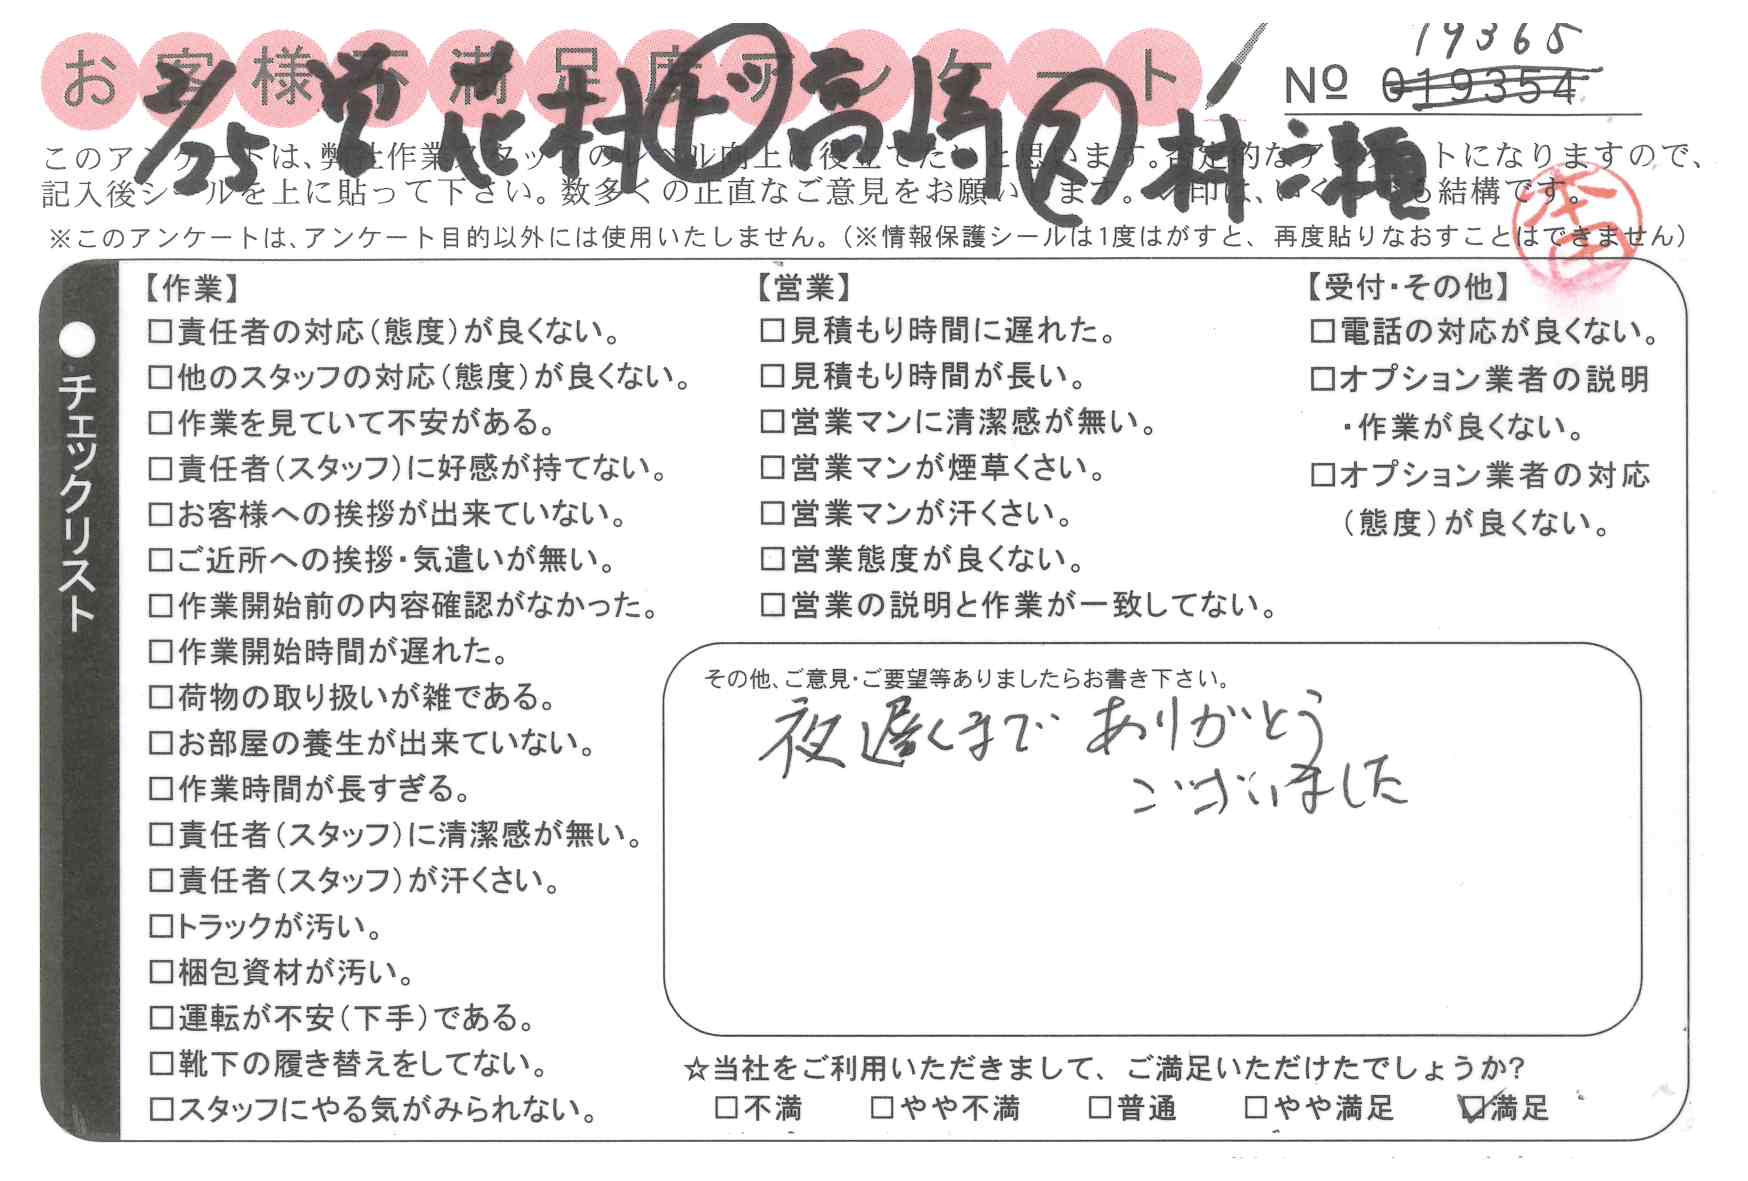 お客様不満足度アンケート
19365
Nº 019354
2/25 営 花村 ㋣ 高崎 ㋜ 村瀬
このアンケートは、弊社作業スタッフのレベル向上に役立てたいと思います。否定的なアンケートになりますので、
記入後シールを上に貼って下さい。数多くの正直なご意見をお願いします。 印は、いくつでも結構です。
※このアンケートは、アンケート目的以外には使用いたしません。(※情報保護シールは1度はがすと、再度貼りなおすことはできません)
●チェックリスト
【作業】
□責任者の対応(態度)が良くない。
□他のスタッフの対応(態度)が良くない。
□作業を見ていて不安がある。
□責任者(スタッフ)に好感が持てない。
□お客様への挨拶が出来ていない。
□ご近所への挨拶・気遣いが無い。
□作業開始前の内容確認がなかった。
□作業開始時間が遅れた。
□荷物の取り扱いが雑である。
□お部屋の養生が出来ていない。
□作業時間が長すぎる。
□責任者(スタッフ)に清潔感が無い。
□責任者(スタッフ)が汗くさい。
□トラックが汚い。
□梱包資材が汚い。
□運転が不安(下手)である。
□靴下の履き替えをしてない。
□スタッフにやる気がみられない。
【営業】
□見積もり時間に遅れた。
□見積もり時間が長い。
□営業マンに清潔感が無い。
□営業マンが煙草くさい。
□営業マンが汗くさい。
□営業態度が良くない。
□営業の説明と作業が一致してない。
【受付・その他】
□電話の対応が良くない。
□オプション業者の説明
・作業が良くない。
□オプション業者の対応
(態度)が良くない。
その他、ご意見・ご要望等ありましたらお書き下さい。
夜遅くまで ありがとう
ございました
☆当社をご利用いただきまして、ご満足いただけたでしょうか?
□不満 □やや不満 □普通 □やや満足 ☑満足